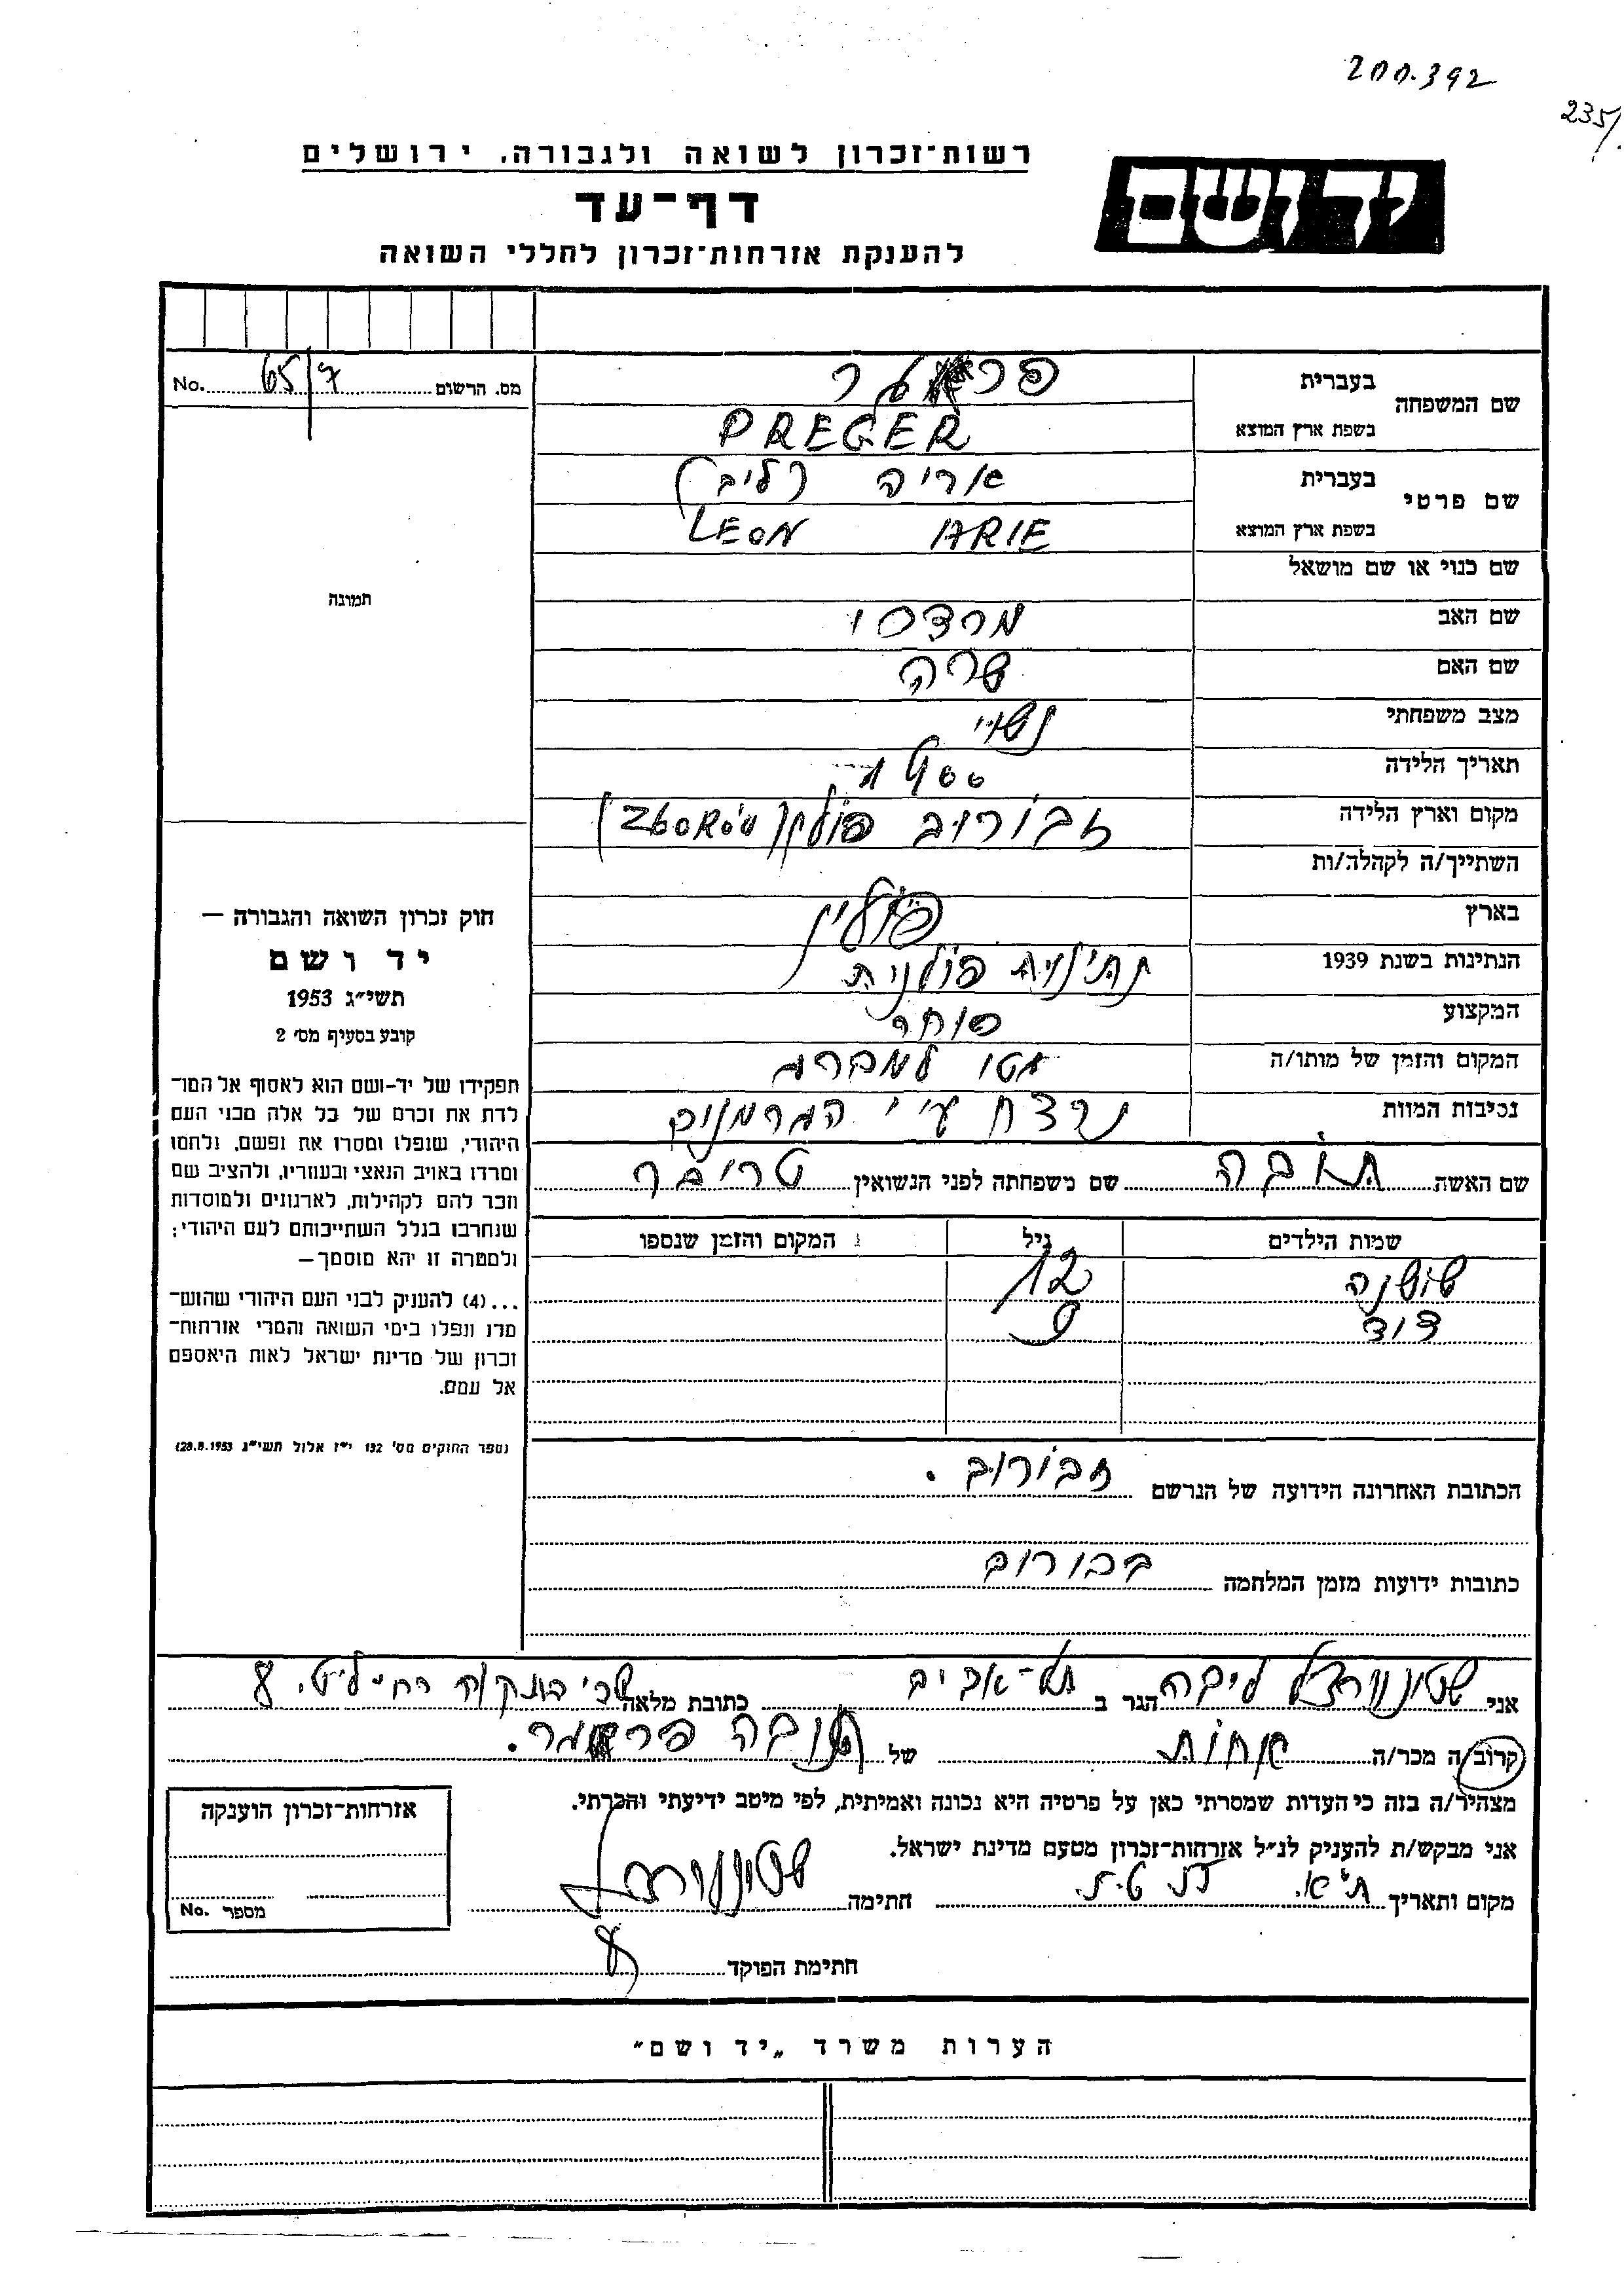 200.392
235/
רשות־זכרון לשואה ולגבורה, ירושלים
יד ושם
דף־עד
להענקת אזרחות־זכרון לחללי השואה
מס. הרשום 65/7 No.
שם המשפחה
בעברית
בשפת ארץ המוצא PREGER
שם פרטי
בעברית אריה (ליב)
בשפת ארץ המוצא LEON ARIE
שם כנוי או שם מושאל
תמונה
שם האב מרדכי
שם האם שרה
מצב משפחתי נשוי
תאריך הלידה 1900
מקום וארץ הלידה זבורוב פולין (Zborów)
השתייך/ה לקהלה/ות
בארץ פולין
הנתינות בשנת 1939 נתינות פולנית
המקצוע סוחר
המקום והזמן של מותו/ה גטו למברג
נסיבות המוות נרצח ע"י הגרמנים
שם האשה טובה שם משפחתה לפני הנשואין
שמות הילדים גיל המקום והזמן שנספו
שושנה 12
דוד 9
חוק זכרון השואה והגבורה —
יד ושם
תשי״ג 1953
קובע בסעיף מס׳ 2
תפקידו של יד-ושם הוא לאסוף אל המו־
לדת את זכרם של כל אלה מבני העם
היהודי, שנפלו ומסרו את נפשם, נלחמו
ומרדו באויב הנאצי ובעוזריו, ולהציב שם
וזכר להם לקהילות, לארגונים ולמוסדות
שנחרבו בגלל השתייכותם לעם היהודי;
ולמטרה זו יהא מוסמך—
...(4) להעניק לבני העם היהודי שהוש־
מדו ונפלו בימי השואה והמרי אזרחות־
זכרון של מדינת ישראל לאות היאספם
אל עמם.
(ספר החוקים מס׳ 132 י״ז אלול תשי״ג 28.8.1953)
הכתובת האחרונה הידועה של הנרשם זבורוב.
כתובות ידועות מזמן המלחמה
אני ליבה הגר ב תל-אביב כתובת מלאה
קרוב/ה מכר/ה אחות של
מצהיר/ה בזה כי העדות שמסרתי כאן על פרטיה היא נכונה ואמיתית, לפי מיטב ידיעתי והכרתי.
אני מבקש/ת להעניק לנ״ל אזרחות־זכרון מטעם מדינת ישראל.
מקום ותאריך ת"א. חתימה
חתימת הפוקד
אזרחות־זכרון הוענקה
מספר No.
הערות משרד „יד ושם״